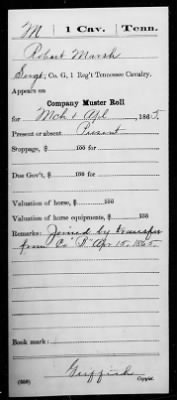 M | 1 Cav. | Tenn.
Robert Marsh
Sergt, Co. G, 1 Reg't Tennessee Cavalry.
Appears on
Company Muster Roll
for Mch & Apl, 1865.
Present or absent Present
Stoppage, $ 100 for
Due Gov't, $ 100 for
Valuation of horse, $ 100
Valuation of horse equipments, $ 100
Remarks: Joined by transfer
from Co "A" Apr 15, 1865
Book mark:
(358)
Copyist.